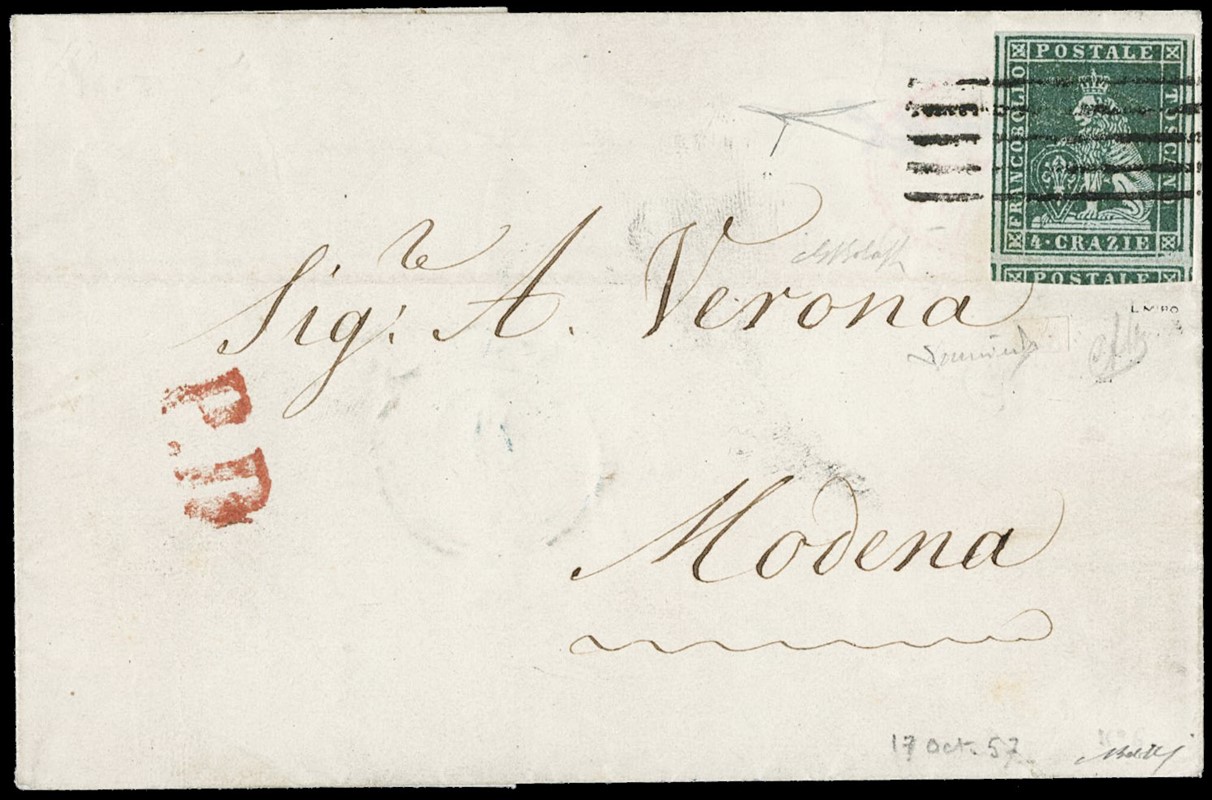 POSTALE
FRANCOBOLLO
TOSCANO
4·CRAZIE
POSTALE
Sig:re A. Verona
P.D
Modena
17 Oct. 57